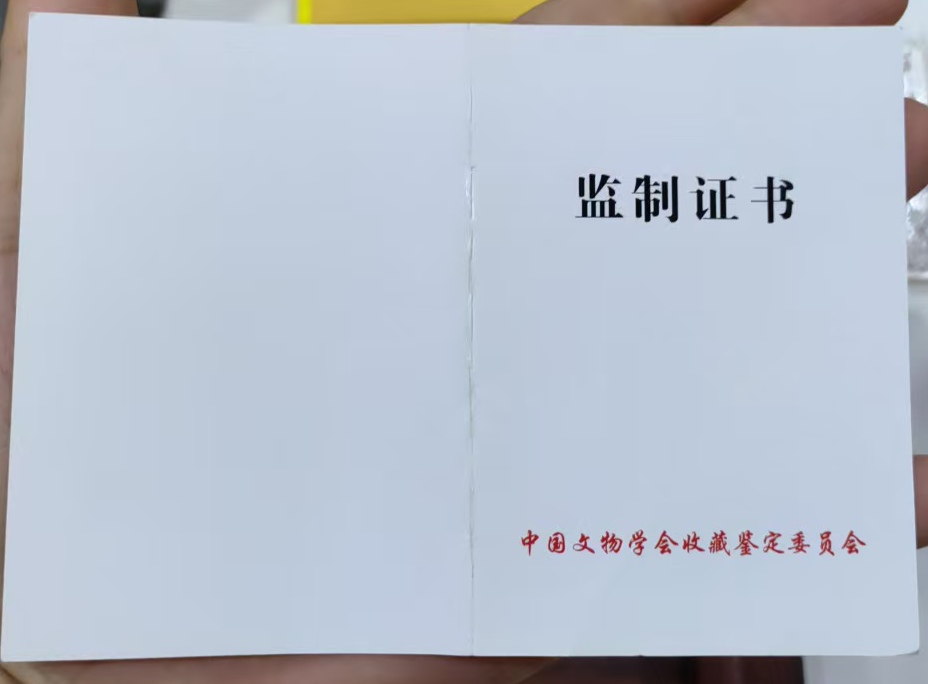 监制证书
中国文物学会收藏鉴定委员会